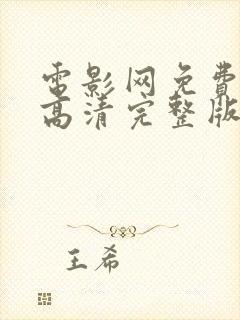 电影网免費
高清完整版
王希